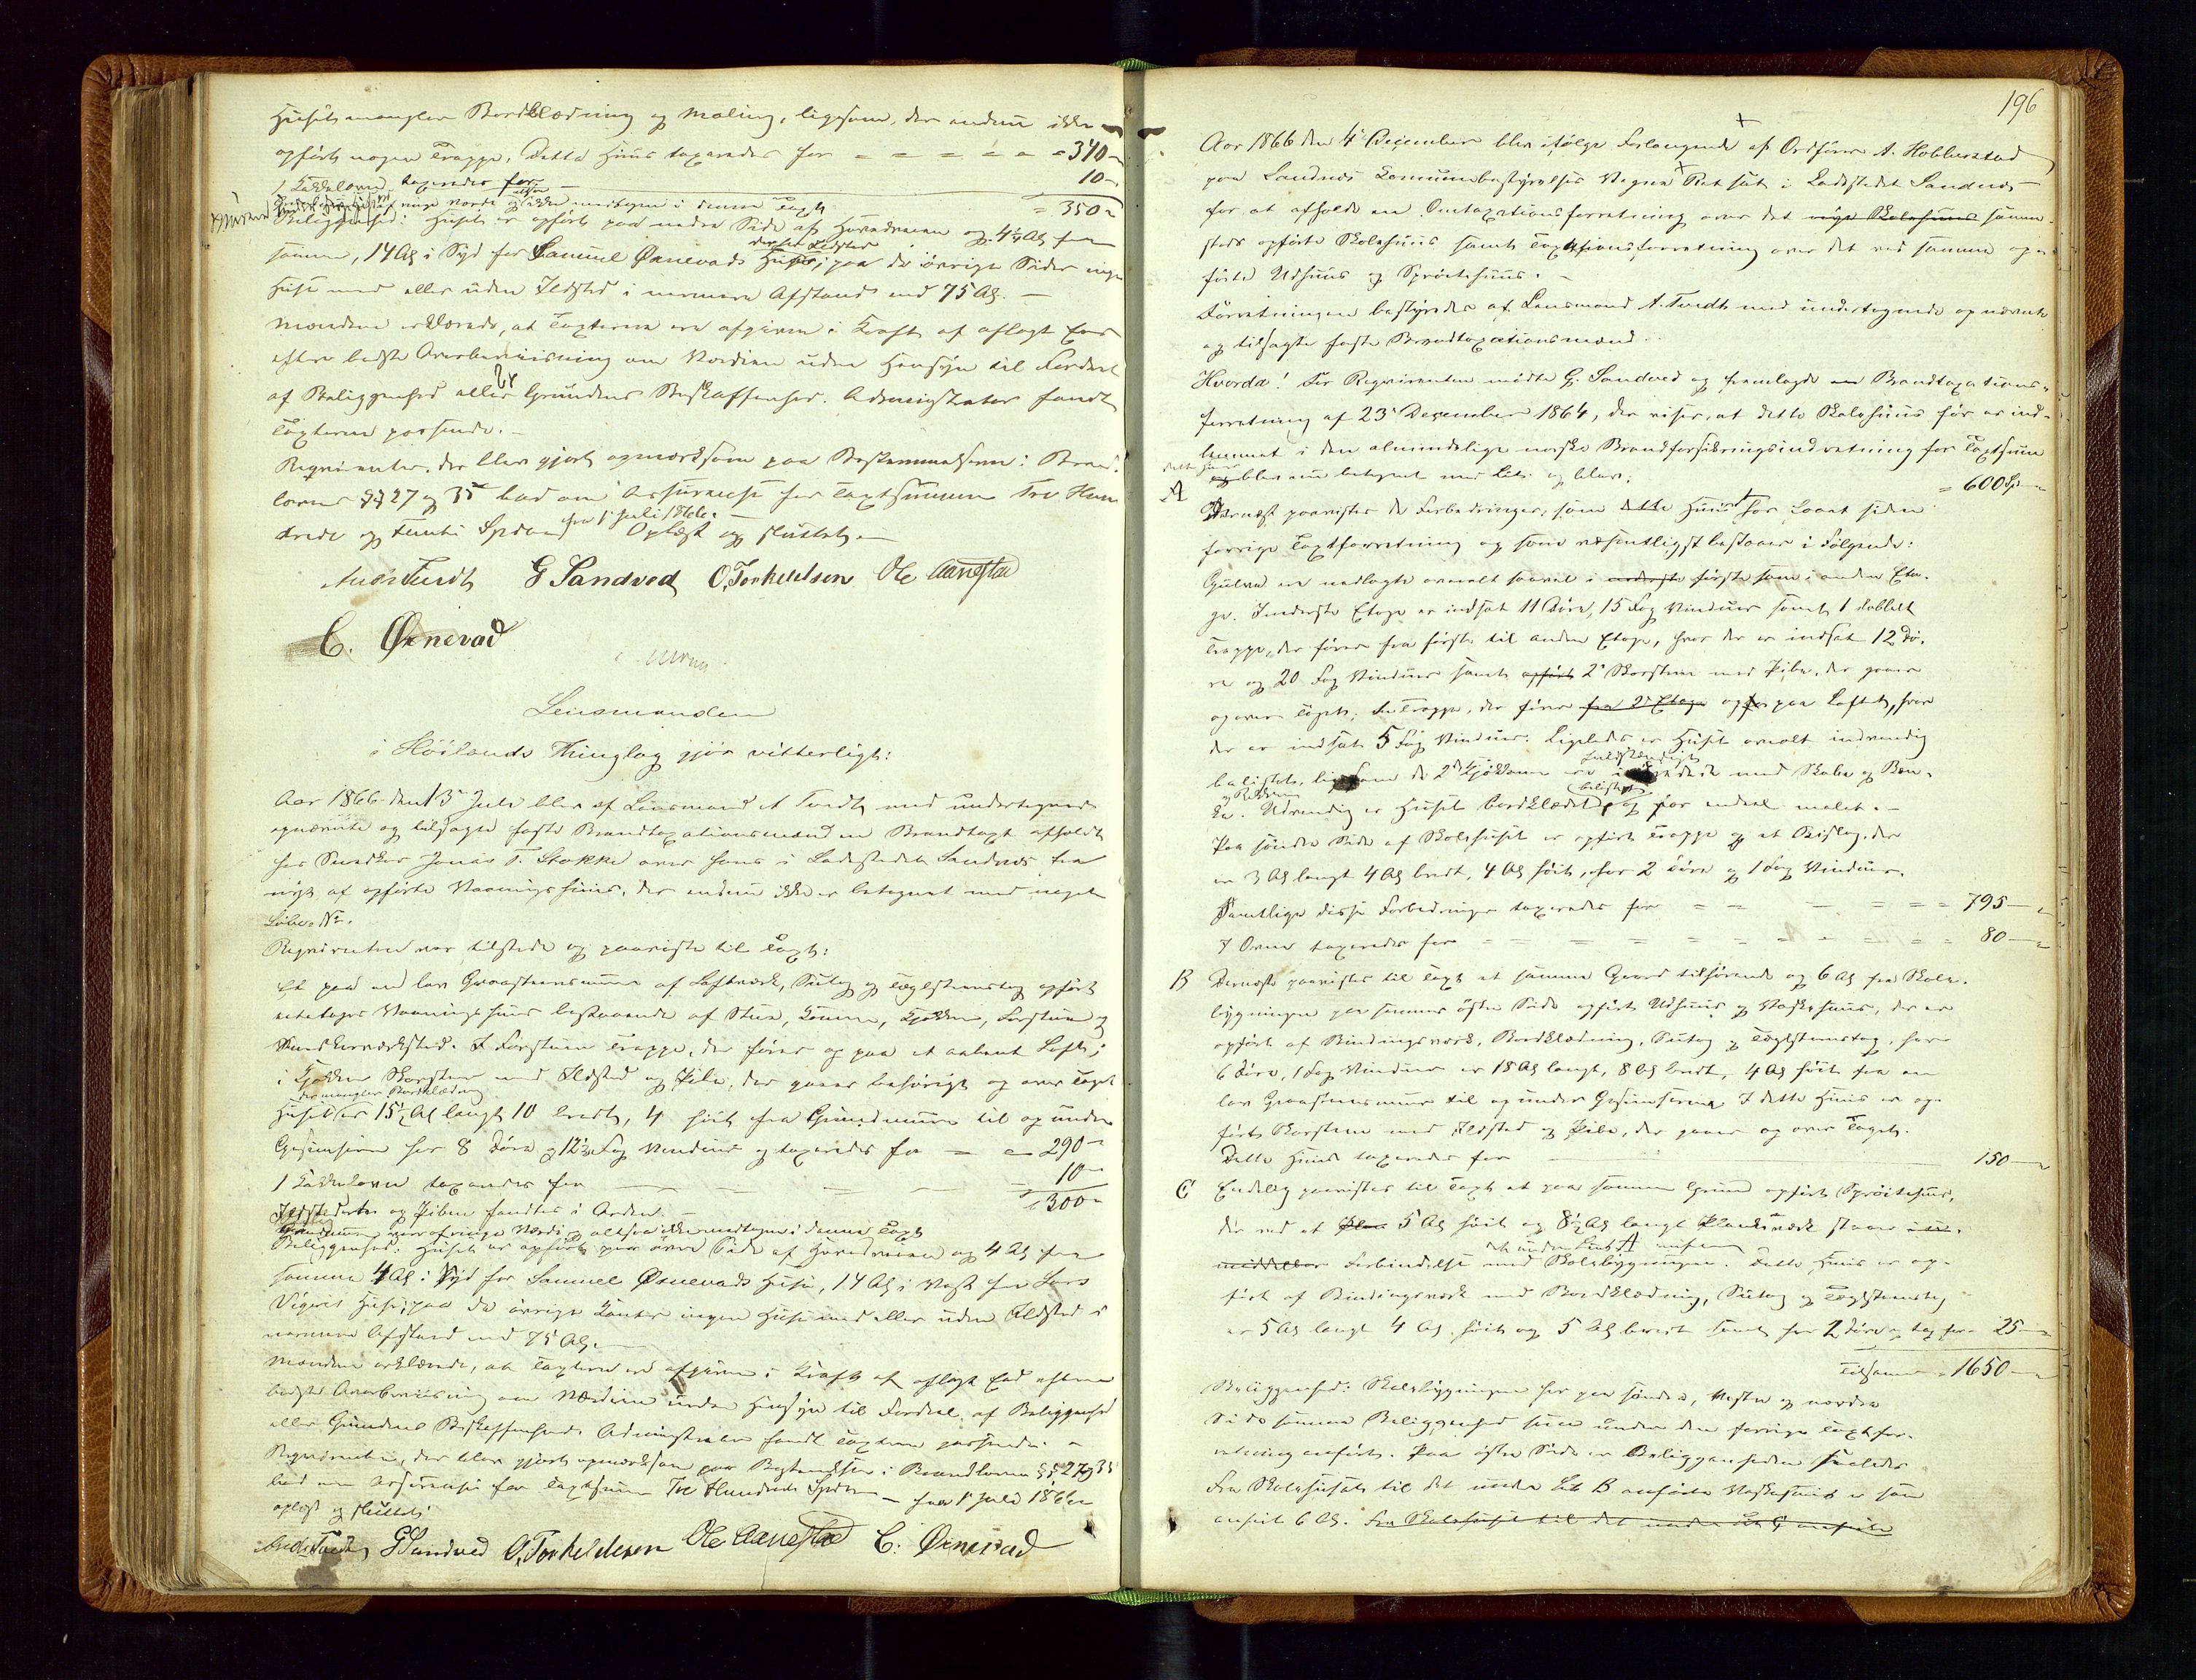 Huset mangler Bordklædning og Maling, ligesom der endnu ikke er
opført nogen Trappe. Dette Huus taxeredes for = = = = = 340 "
1 Kakkelovn taxeredes for 10 "
ringe Værdi og ikke medtagen i denne Taxt = 350 "
Beliggenhed: Huset er opført paa nedre Side af Hovedveien og 4½ Al fra
samme, 14 Al i Syd for Samuel Ørnevads Huse, paa de øvrige Sider ingen
Huse med eller uden Ildsted i nærmere Afstand end 75 Al. —
Mændene erklærede, at Taxterne ere afgivne i Kraft af aflagt Eed
efter bedste Overbeviisning om Værdien uden Hensyn til Fordeel
af Beliggenhed eller Grundens Beskaffenhed. Administrator fandt
Taxterne passende. —
Reqvirenten, der blev gjort opmærksom paa Bestemmelserne i Brand-
lovens §§ 27 og 35 bad om Assurance for Taxtsummen Tre Hun-
drede og Femti Spdlr fra 1 Juli 1866. Oplæst og sluttet. —
Anders Tvedt G Sandved O. Torkeldsen Ole Aanestad
C. Ørnevad
Lensmanden
i Høilands Thinglag gjør vitterligt:
Aar 1866 den 13 Juli blev af Lensmand A Tvedt med undertegnede
opnævnte og tilsagte faste Brandtaxationsmænd en Brandtaxt afholdt
hos Snedker Jonas T. Stokke over hans i Ladestedet Sandnæs fra
nyt af opførte Vaaningshuus, der endnu ikke er betegnet med noget
Løbe No.
Reqvirenten var tilstede og paaviste til Taxt:
Et paa en lav Graasteensmuur af Loftværk, Sutag og Teglsteenstag opført
eetages Vaaningshuus bestaaende af Stue, Kammer, Kjøkken, Forstue og
Snedkerværksted. I Forstuen Trappe, der fører op paa et aabent Loft;
i Kjøkken Skorsteen med Ildsted og Pibe, der gaaer behørigt op over Taget
der mangler Bordklædning
Huset er 15½ Al langt 10 bredt, 4 høit fra Grundmuren til op under
Gesimsen har 8 Døre og 12½ Fag Vinduer og taxeredes for = = 290 "
1 Kakkelovn taxeredes for — — — — = 10 "
= 300 "
Ildstedet og Piben fandtes i Orden. —
Grundmuren var af ringe Værdi og altsaa ikke medtagen i denne Taxt
Beliggenhed: Huset er opført paa øvre Side af Hovedveien og 4 Al fra
samme 4 Al i Syd for Samuel Ørnevads Huse, 14 Al i Vest for Lars
Vigres Huse; paa de øvrige Kanter ingen Huse med eller uden Ildsted i
nærmere Afstand end 75 Al. —
Mændene erklærede, at Taxterne ere afgivne i Kraft af aflagt Eed efter
bedste Overbeviisning om Værdien uden Hensyn til Fordeel af Beliggenhed
eller Grundens Beskaffenhed. Administrator fandt Taxterne passende. —
Reqvirenten, der blev gjort opmærksom paa Bestemmelserne i Brandlovens §§ 27 og 35
bad om Assurance for Taxtsummen Tre Hundrede Spdlr — fra 1 Juli 1866
oplæst og sluttet
Anders Tvedt G Sandved O. Torkeldsen Ole Aanestad C. Ørnevad
196
Aar 1866 den 4 December blev ifølge Forlangende af Ordfører A. Hobberstad
paa Sandnæs Communebestyrelses Vegne Ret sat i Ladestedet Sandnæs —
for at afholde en Omtaxationsforretning over det nye Skolehuus samme-
steds opførte Skolehuus samt Taxationsforretning over det ved samme op-
førte Udhuus og Sprøitehuus. —
Forretningen bestyredes af Lensmand A. Tvedt med undertegnede opnævnte
og tilsagte faste Brandtaxationsmænd.
Hvorda! For Reqvirenten mødte G. Sandved og fremlagde en Brandtaxations-
forretning af 23 December 1864, der viser, at dette Skolehuus før er ind-
lemmet i den almindelige norske Brandforsikringsindretning for Taxtsum
dette Huus
og blev nu betegnet med Lit. og blev: = 600 Sp "
A
Dernæst paavistes de Forbedringer, som dette Huus har faaet siden
forrige Taxtforretning og som væsentligst bestaaer i Følgende:
Gulve ere nedlagte overalt saavel i nederste første som i anden Eta-
ge. I nederste Etage er indsat 11 Døre, 15 Fag Vinduer samt 1 dobbelt
Trappe, der fører fra første til anden Etage, hvor der er indsat 12 Dø-
re og 20 Fag Vinduer samt opført 2 Skorstene med Pibe, der gaaer
op over Taget; en Trappe, der fører fra 2 Etage op paa Loftet, hvor
der er indsat 5 Fag Vinduer. Ligeledes er Huset overalt indvendig
belistet, ligesom de 2 Kjøkkener ere fuldstændigt indredede med Skabe og Bæn-
ke. Udvendig er Huset bordklædt, belistet og for endeel malet. —
Paa søndre Side af Skolehuset er opført Trappe og et Bislag, der
er 3 Al langt 4 Al bredt, 4 Al høit, har 2 Døre og 1 Fag Vinduer.
Samtlige disse Forbedringer taxeredes for = = — = = = 795 — "
7 Ovne taxeredes for = = = = = = = = = = 80 — "
B Dernæst paavistes til Taxt et samme Gaard tilhørende og 6 Al fra Skole-
bygningen paa sammes østre Side opført Udhuus og Vaskehuus, der er
opført af Bindingsværk, Bordklædning, Sutag og Teglsteenstag, har
6 Døre, 1 Fag Vinduer er 18 Al langt, 8 Al bredt, 4 Al høit fra en
lav Graasteensmuur til op under Gesimserne. I dette Huus er op-
ført Skorsteen med Ildsted og Pibe, der gaaer op over Taget.
Dette Huus taxeredes for — 150 — "
C Endelig paavistes til Taxt et paa samme Grund opført Sprøitehuus,
der ved et Plan 5 Al høit og 8½ Al langt Plankeværk staaer i u-
det under Litr A anførte
middelbar Forbindelse med Skolebygningen. Dette Huus er op-
ført af Bindingsværk med Bordklædning, Sutag og Teglsteenstag
er 5 Al langt 4 Al høit og 5 Al bredt samt har 2 Døre og tax for 25 — "
Tilsammen = 1650 — "
Beliggenhed: Skolebygningen har paa søndre, vestre og nordre
Side samme Beliggenhed som under den forrige Taxtfor-
retning anført. Paa østre Side er Beliggenheden saaledes
Fra Skolehuset til det under Lit B anførte Vaskehuus er som
anført 6 Al. Fra Skolehuset til det under Lit C anførte